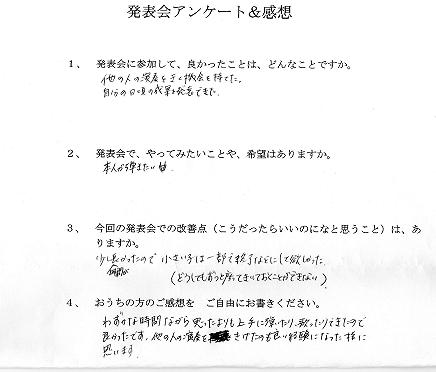 発表会アンケート＆感想
1、 発表会に参加して、良かったことは、どんなことですか。
他の人の演奏をきく機会を持てた。
自分の日頃の成果を発表できた。
2、 発表会で、やってみたいことや、希望はありますか。
本人から弾きたい曲
3、 今回の発表会での改善点（こうだったらいいのになと思うこと）は、あ
りますか。
少し長かったので 小さい子は一部で終了などにして欲しかった。
時間が
（どうしてもずっと座ってきいておくことができない）
4、 おうちの方のご感想を ご自由にお書きください。
わずかな時間ながら 思ったよりも上手に弾いたり、歌ったりできたので
良かったです。他の人の演奏を きけたのも良い経験になった様に
思います。